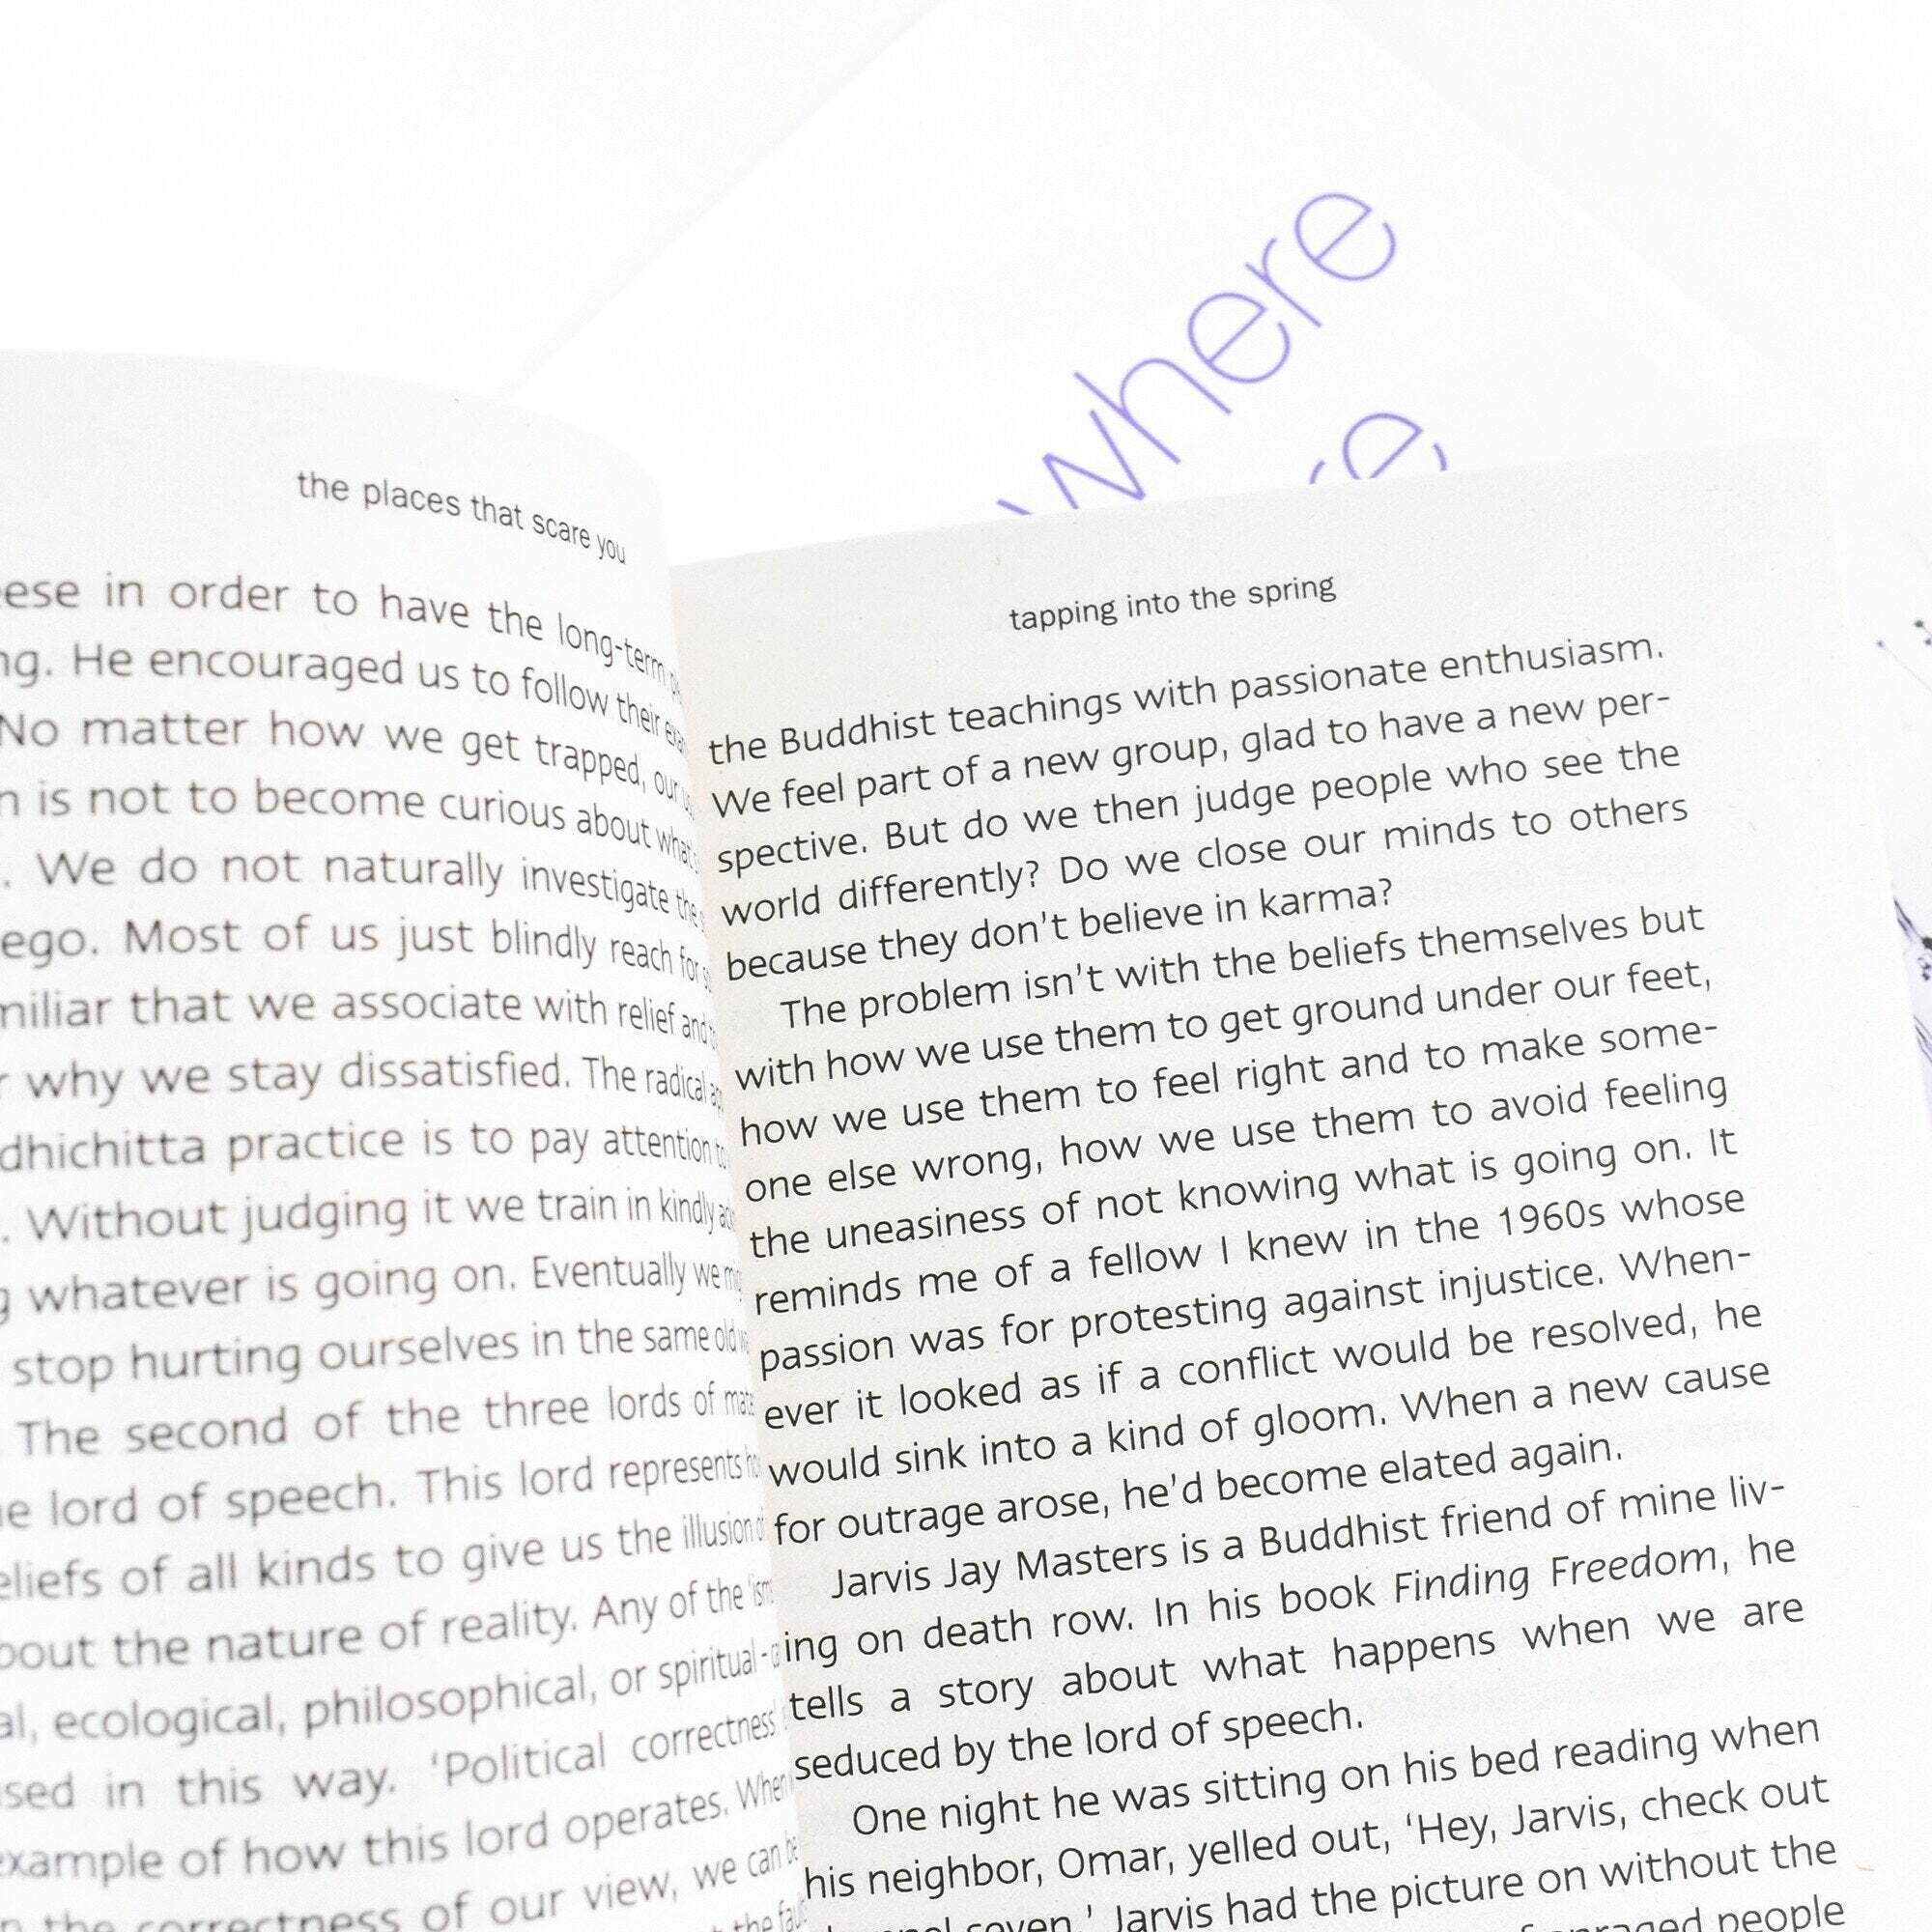 where
re,
the places that scare you
in order to have the long-term
He encouraged us to follow their
No matter how we get trapped, our
is not to become curious about what
. We do not naturally investigate the
ego. Most of us just blindly reach for
that we associate with relief and
why we stay dissatisfied. The radical
practice is to pay attention
. Without judging it we train in kindly
whatever is going on. Eventually we
stop hurting ourselves in the same old
The second of the three lords of
lord of speech. This lord represents
of all kinds to give us the illusion
the nature of reality. Any of the
ecological, philosophical, or spiritual -
in this way. ‘Political correctness
of how this lord operates. When
the correctness of our view, we can
the
tapping into the spring
the Buddhist teachings with passionate enthusiasm.
We feel part of a new group, glad to have a new per-
spective. But do we then judge people who see the
world differently? Do we close our minds to others
because they don’t believe in karma?
The problem isn’t with the beliefs themselves but
with how we use them to get ground under our feet,
how we use them to feel right and to make some-
one else wrong, how we use them to avoid feeling
the uneasiness of not knowing what is going on. It
reminds me of a fellow I knew in the 1960s whose
passion was for protesting against injustice. When-
ever it looked as if a conflict would be resolved, he
would sink into a kind of gloom. When a new cause
for outrage arose, he’d become elated again.
Jarvis Jay Masters is a Buddhist friend of mine liv-
ing on death row. In his book Finding Freedom, he
tells a story about what happens when we are
seduced by the lord of speech.
One night he was sitting on his bed reading when
his neighbor, Omar, yelled out, ‘Hey, Jarvis, check out
seven.’ Jarvis had the picture on without the
people